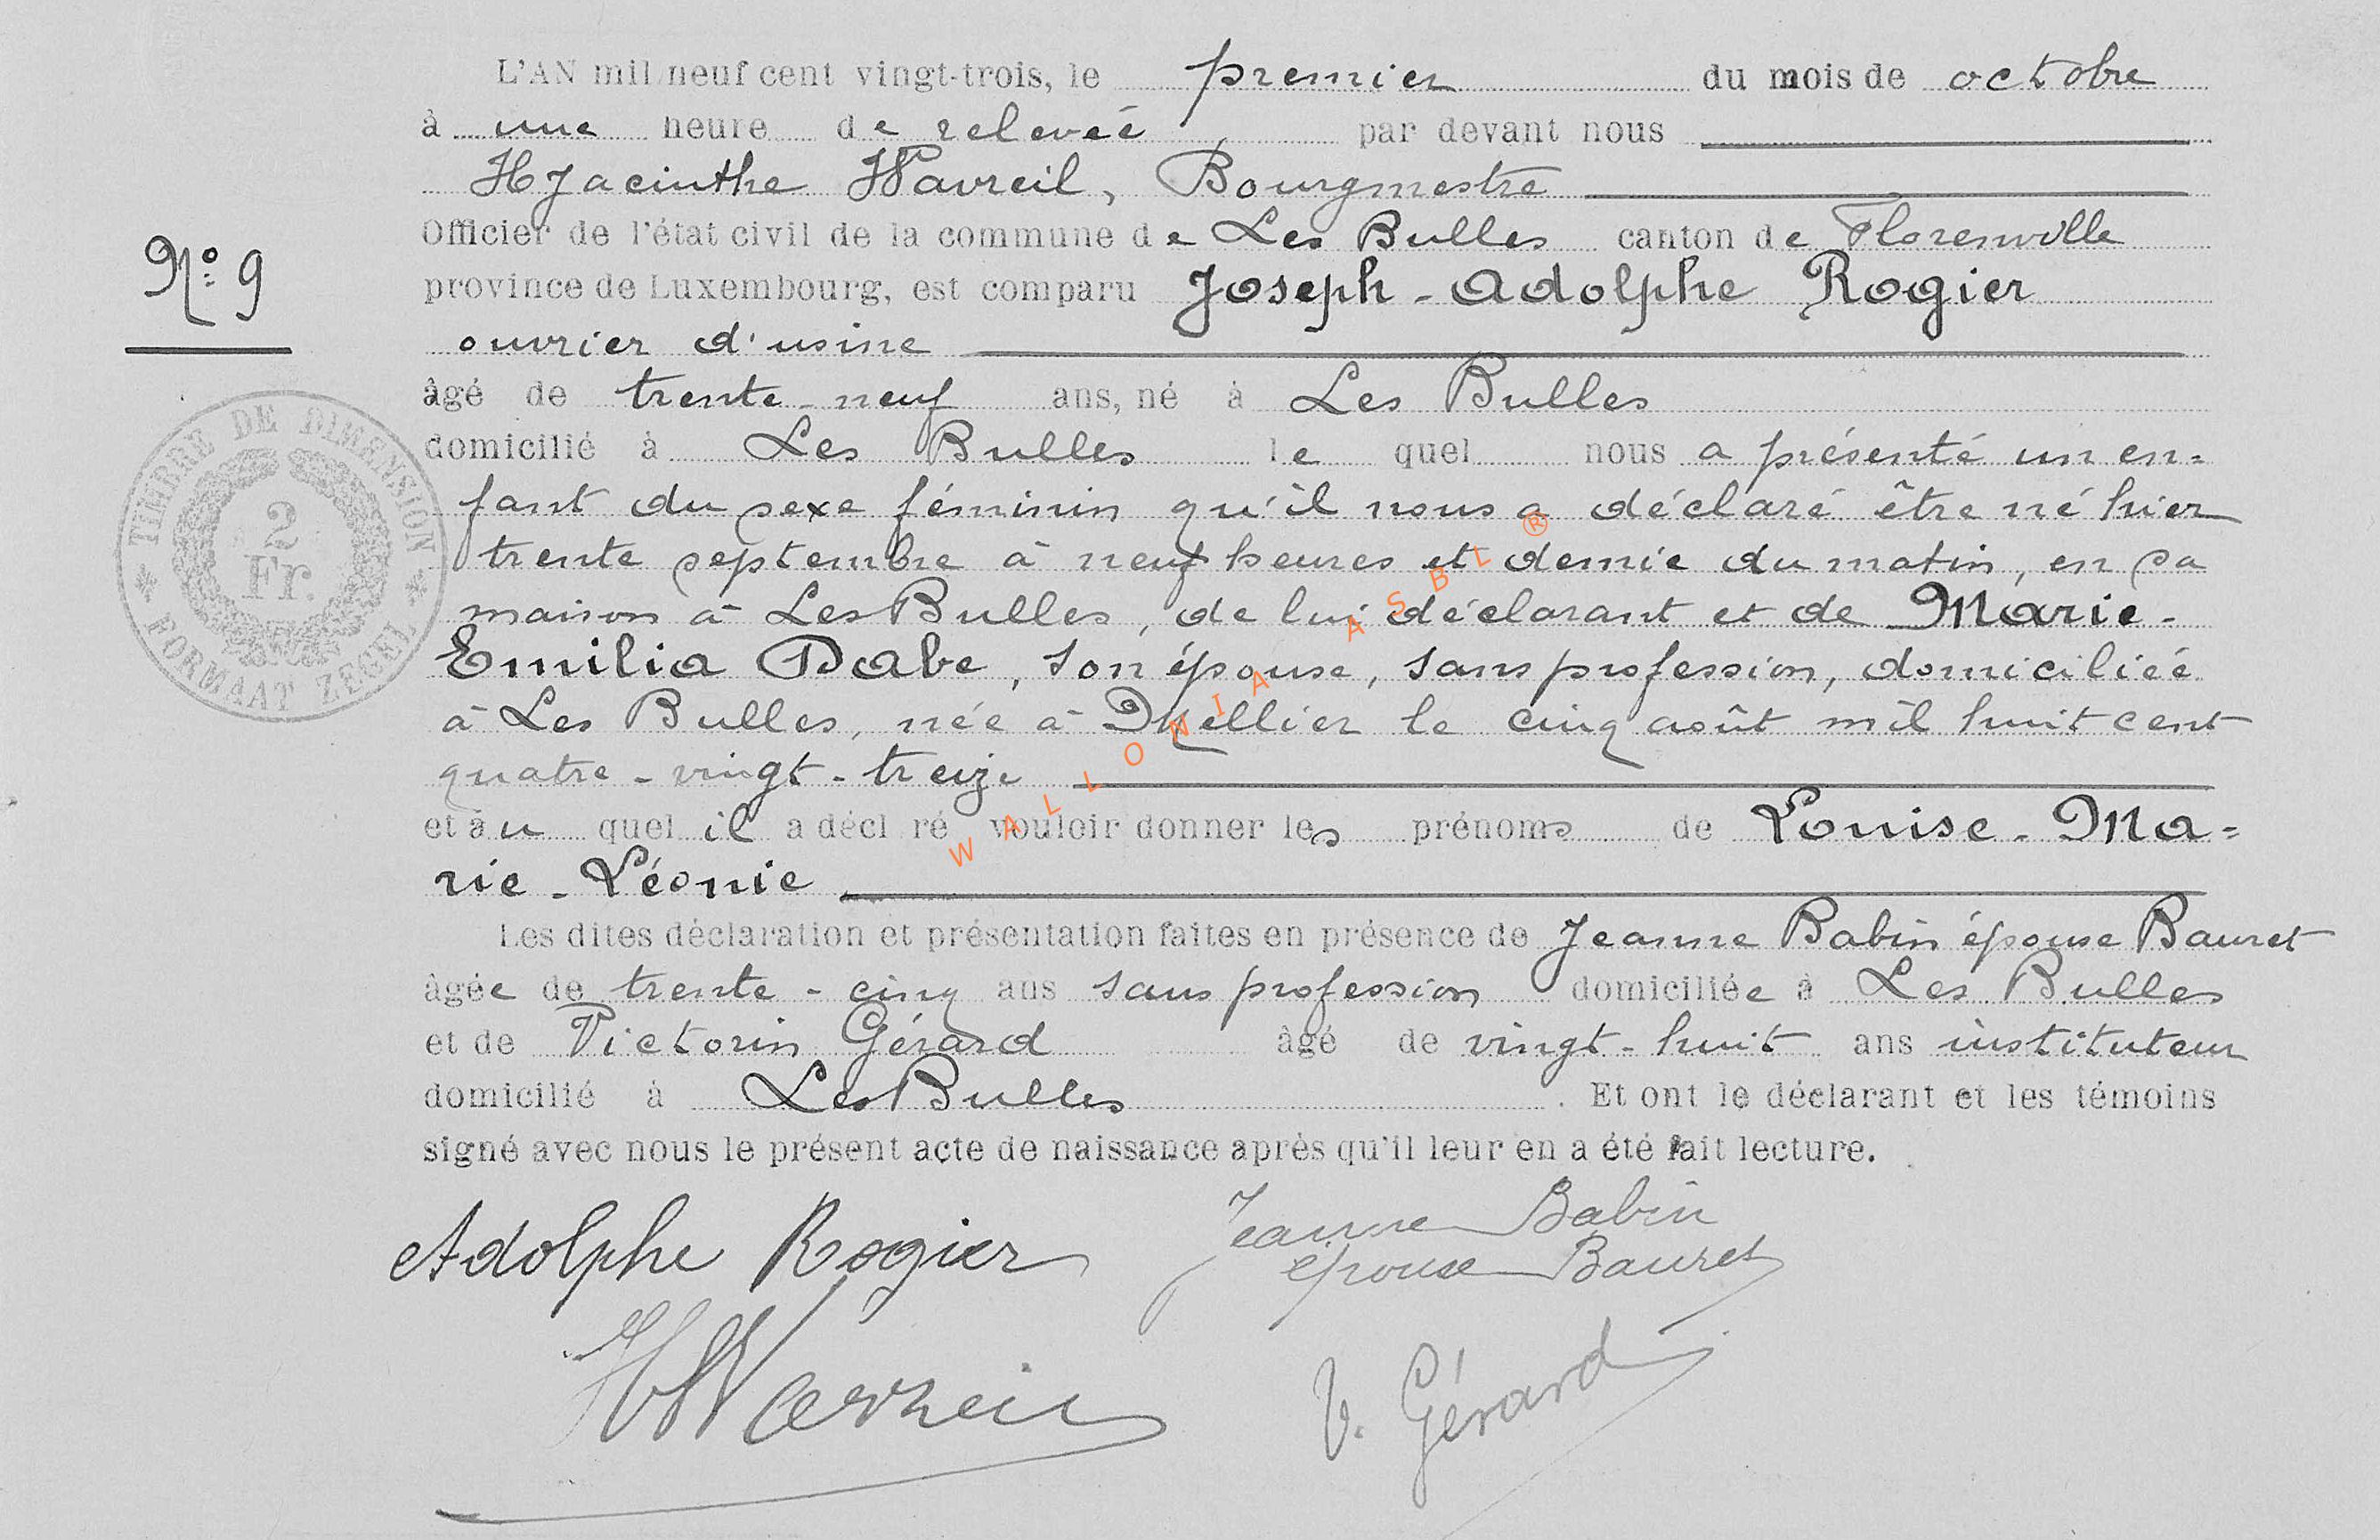 L'AN mil neuf cent vingt-trois, le premier du mois de octobre
à une heure de relevée par devant nous
Hyacinthe Wavreil, Bourgmestre
Officier de l'état civil de la commune de Les Bulles canton de Florenville
province de Luxembourg, est comparu Joseph-Adolphe Rogier
Nº 9
ouvrier d'usine
âgé de trente-neuf ans, né à Les Bulles
domicilié à Les Bulles le quel nous a présenté un en=
fant du sexe féminin qu'il nous a déclaré être né hier
trente septembre à neuf heures et demie du matin, en sa
maison à Les Bulles, de lui déclarant et de Marie-
Emilia Dabe, son épouse, sans profession, domiciliée
à Les Bulles, née à Mellier le cinq août mil huit cent
quatre-vingt-treize
et au quel il a décl ré vouloir donner les prénoms de Louise-Ma=
rie-Léonie
Les dites déclaration et présentation faites en présence de Jeanne Babin épouse Bauret
âgée de trente-cinq ans sans profession domiciliée à Les Bulles
et de Victorin Gérard âgé de vingt-huit ans instituteur
domicilié à Les Bulles. Et ont le déclarant et les témoins
signé avec nous le présent acte de naissance après qu'il leur en a été fait lecture.
TIMBRE DE DIMENSION
2
Fr.
FORMAAT ZEGEL
WALLONIA ASBL ®
Adolphe Rogier
Jeanne Babin
épouse Bauret
HWavreil
V. Gérard